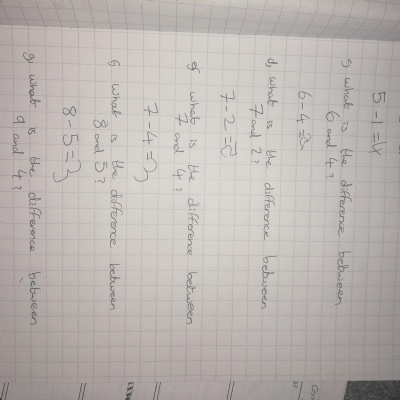 5-1=4
c, what is the difference between
6 and 4?
6-4=2
d, what is the difference between
7 and 2?
7-2=5
e, what is the difference between
7 and 4?
7-4=3
f, what is the difference between
8 and 5?
8-5=3
g, what is the difference between
9 and 4?